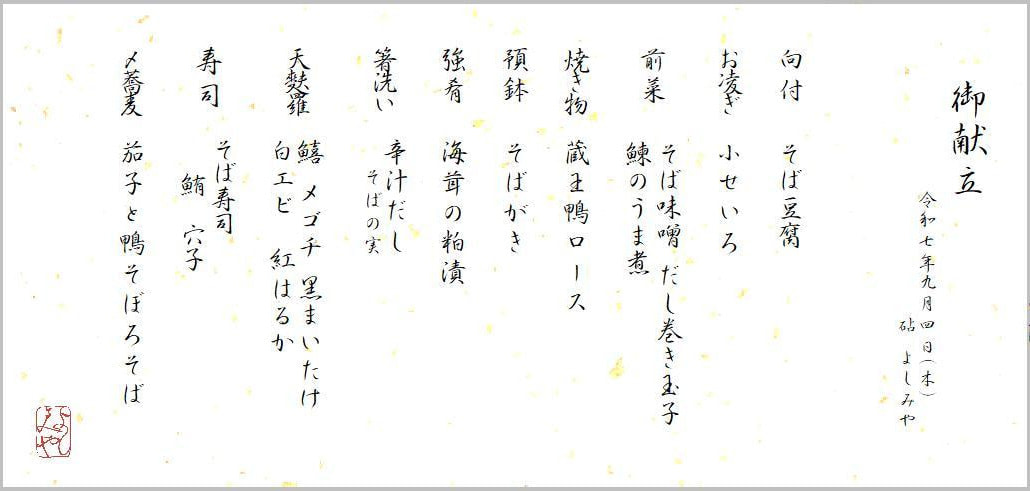 御献立
令和七年九月四日(木)
砧 よしみや
向付 そば豆腐
お凌ぎ 小せいろ
前菜 そば味噌 だし巻き玉子
鰊のうま煮
焼き物 蔵王鴨ロース
預鉢 そばがき
強肴 海茸の粕漬
箸洗い 辛汁だし
そばの実
天麩羅 鱚 メゴチ 黒まいたけ
白エビ 紅はるか
寿司 そば寿司
鮪 穴子
〆蕎麦 茄子と鴨そぼろそば